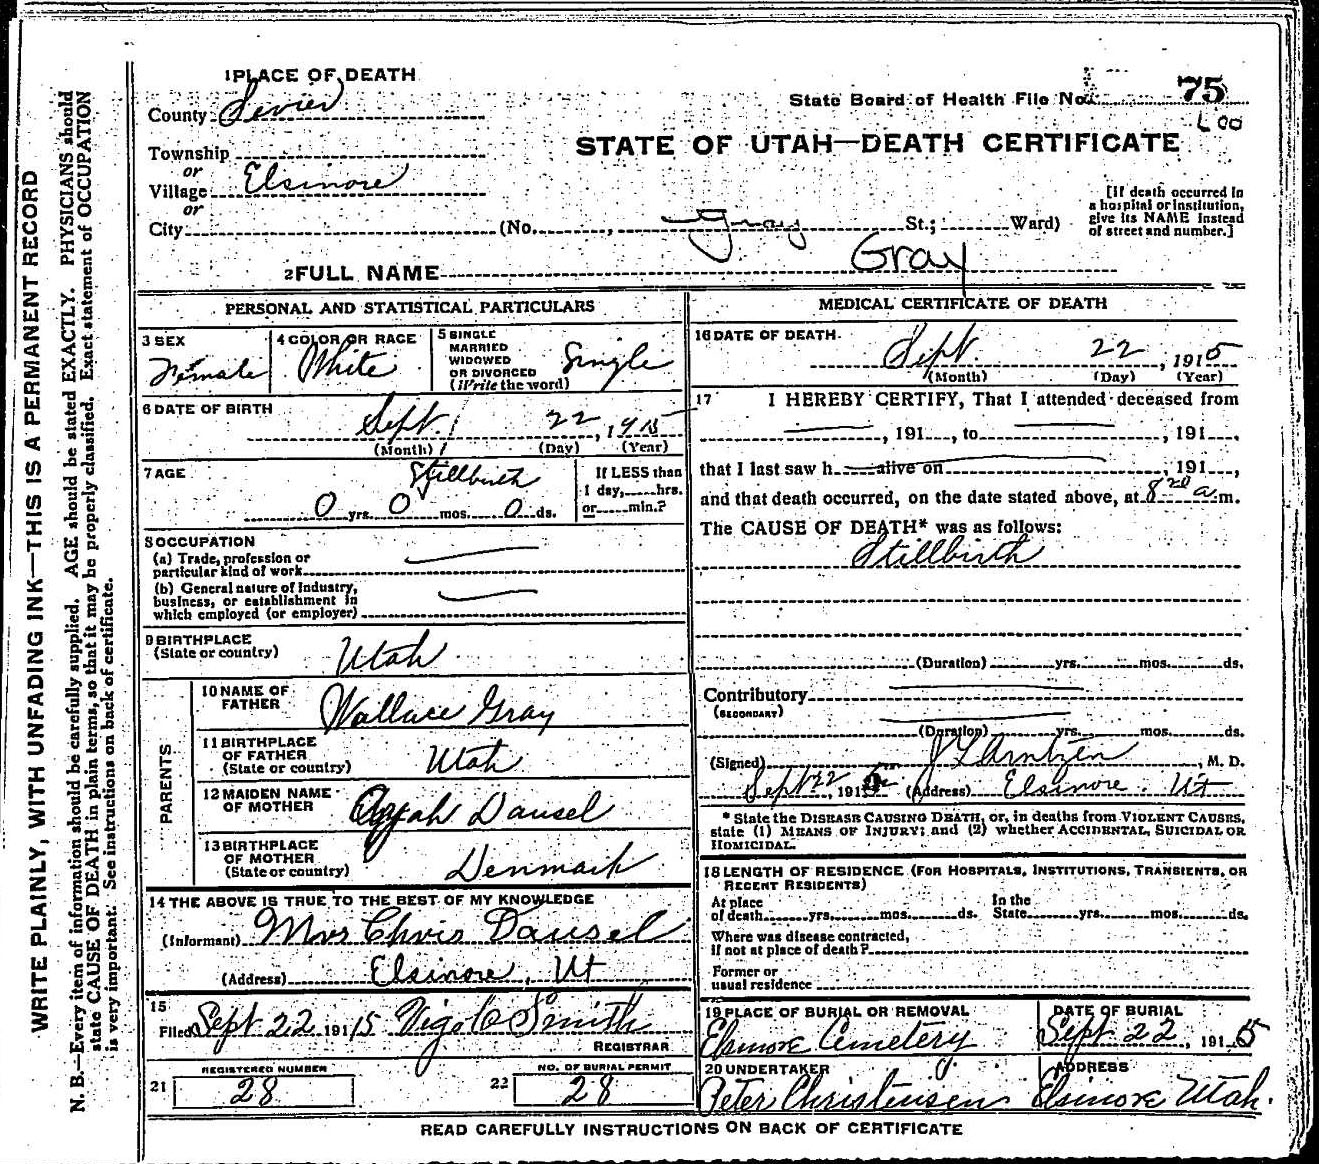 1 PLACE OF DEATH
County Sevier
State Board of Health File No. 75
Township
or
Village Elsinore
or
City (No. , Gray St.; Ward)
STATE OF UTAH—DEATH CERTIFICATE
[If death occurred in
a hospital or institution,
give its NAME instead
of street and number.]
2 FULL NAME Gray
PERSONAL AND STATISTICAL PARTICULARS
3 SEX
Female
4 COLOR OR RACE
White
5 SINGLE
MARRIED
WIDOWED
OR DIVORCED
(Write the word)
Single
6 DATE OF BIRTH
Sept. 22, 1915
(Month) (Day) (Year)
7 AGE
Stillbirth
0 yrs. 0 mos. 0 ds.
If LESS than
1 day, hrs.
or min.?
8 OCCUPATION
(a) Trade, profession or
particular kind of work
(b) General nature of Industry,
business, or establishment in
which employed (or employer)
9 BIRTHPLACE
(State or country)
Utah
PARENTS
10 NAME OF
FATHER
Wallace Gray
11 BIRTHPLACE
OF FATHER
(State or country)
Utah
12 MAIDEN NAME
OF MOTHER
Dausel
13 BIRTHPLACE
OF MOTHER
(State or country)
Denmark
14 THE ABOVE IS TRUE TO THE BEST OF MY KNOWLEDGE
(Informant) Mrs Chris Dausel
(Address) Elsinore, Ut
15
Filed Sept 22 1915 Smith
REGISTRAR
21
REGISTERED NUMBER
28
22
NO. OF BURIAL PERMIT
28
MEDICAL CERTIFICATE OF DEATH
16 DATE OF DEATH
Sept. 22, 1915
(Month) (Day) (Year)
17 I HEREBY CERTIFY, That I attended deceased from
, 191 , to , 191 ,
that I last saw h alive on , 191 ,
and that death occurred, on the date stated above, at 8 20 a.m.
The CAUSE OF DEATH* was as follows:
Stillbirth
(Duration) yrs. mos. ds.
Contributory
(SECONDARY)
(Duration) yrs. mos. ds.
(Signed) Arntzen, M. D.
Sept 22, 1915 (Address) Elsinore. Ut
* State the DISEASE CAUSING DEATH, or, in deaths from VIOLENT CAUSES,
state (1) MEANS OF INJURY; and (2) whether ACCIDENTAL, SUICIDAL OR
HOMICIDAL.
18 LENGTH OF RESIDENCE (FOR HOSPITALS, INSTITUTIONS, TRANSIENTS, OR
RECENT RESIDENTS)
At place
of death yrs. mos. ds.
In the
State yrs. mos. ds.
Where was disease contracted,
if not at place of death?
Former or
usual residence
19 PLACE OF BURIAL OR REMOVAL
Elsinore Cemetery
DATE OF BURIAL
Sept 22, 1915
20 UNDERTAKER
Peter Christensen
ADDRESS
Elsinore Utah.
READ CAREFULLY INSTRUCTIONS ON BACK OF CERTIFICATE
WRITE PLAINLY, WITH UNFADING INK—THIS IS A PERMANENT RECORD
N. B.—Every item of information should be carefully supplied. AGE should be stated EXACTLY. PHYSICIANS should
state CAUSE OF DEATH in plain terms, so that it may be properly classified. Exact statement of OCCUPATION
is very important. See instructions on back of certificate.